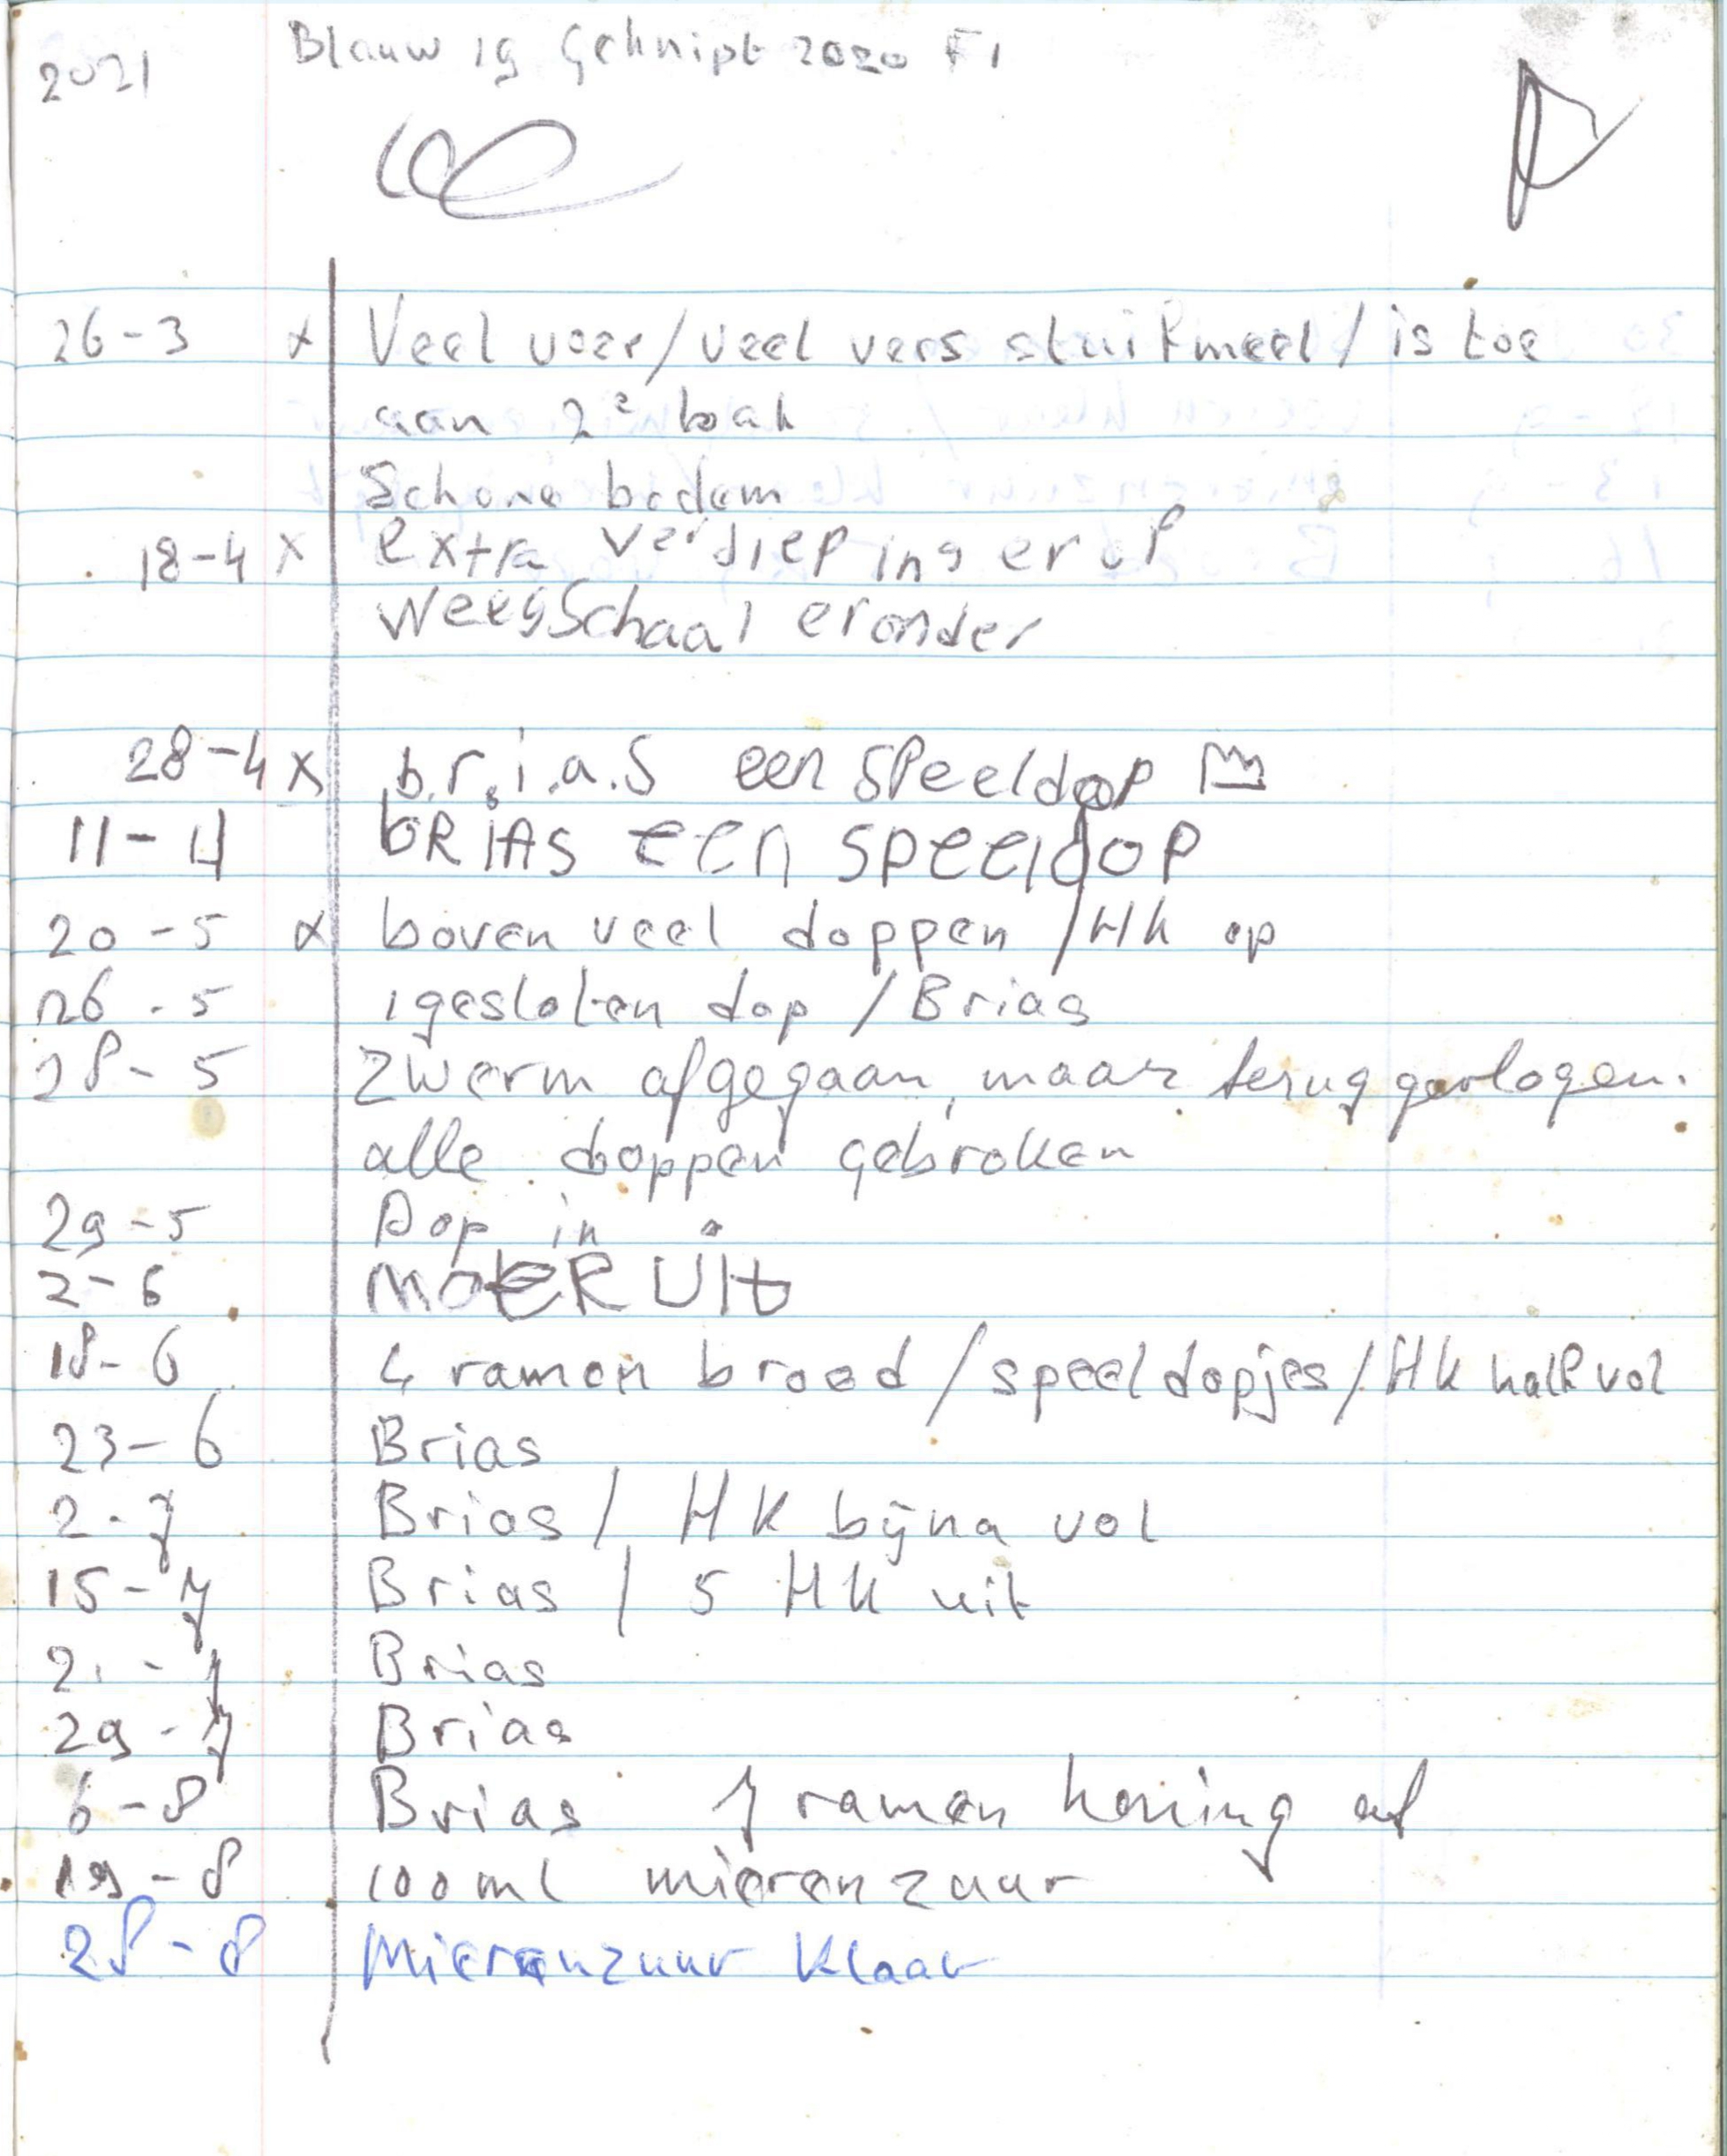 2021 Blauw 19 Geknipt 2020 F1
26-3 x Veel voer/veel vers stuifmeel/is toe
aan 2e bak
Schone bodem
18-4 x extra verdieping erop
weegschaal eronder
28-4 x b.r.i.a.s een speeldop
11-4 bRiAS een speeldop
20-5 x boven veel doppen /HK op
26-5 1 gesloten dop /Brias
28-5 Zwerm afgegaan, maar terug gevlogen.
alle doppen gebroken
29-5 Dop in
2-6 MOER Uit
18-6 4 ramen broed/speeldopjes/HK half vol
23-6 Brias
2-7 Brias / HK bijna vol
15-7 Brias / 5 HK uit
Brias
29-7 Brias
6-8 Brias 7 ramen honing af
19-8 100ml mierenzuur
28-8 Mierenzuur Klaar